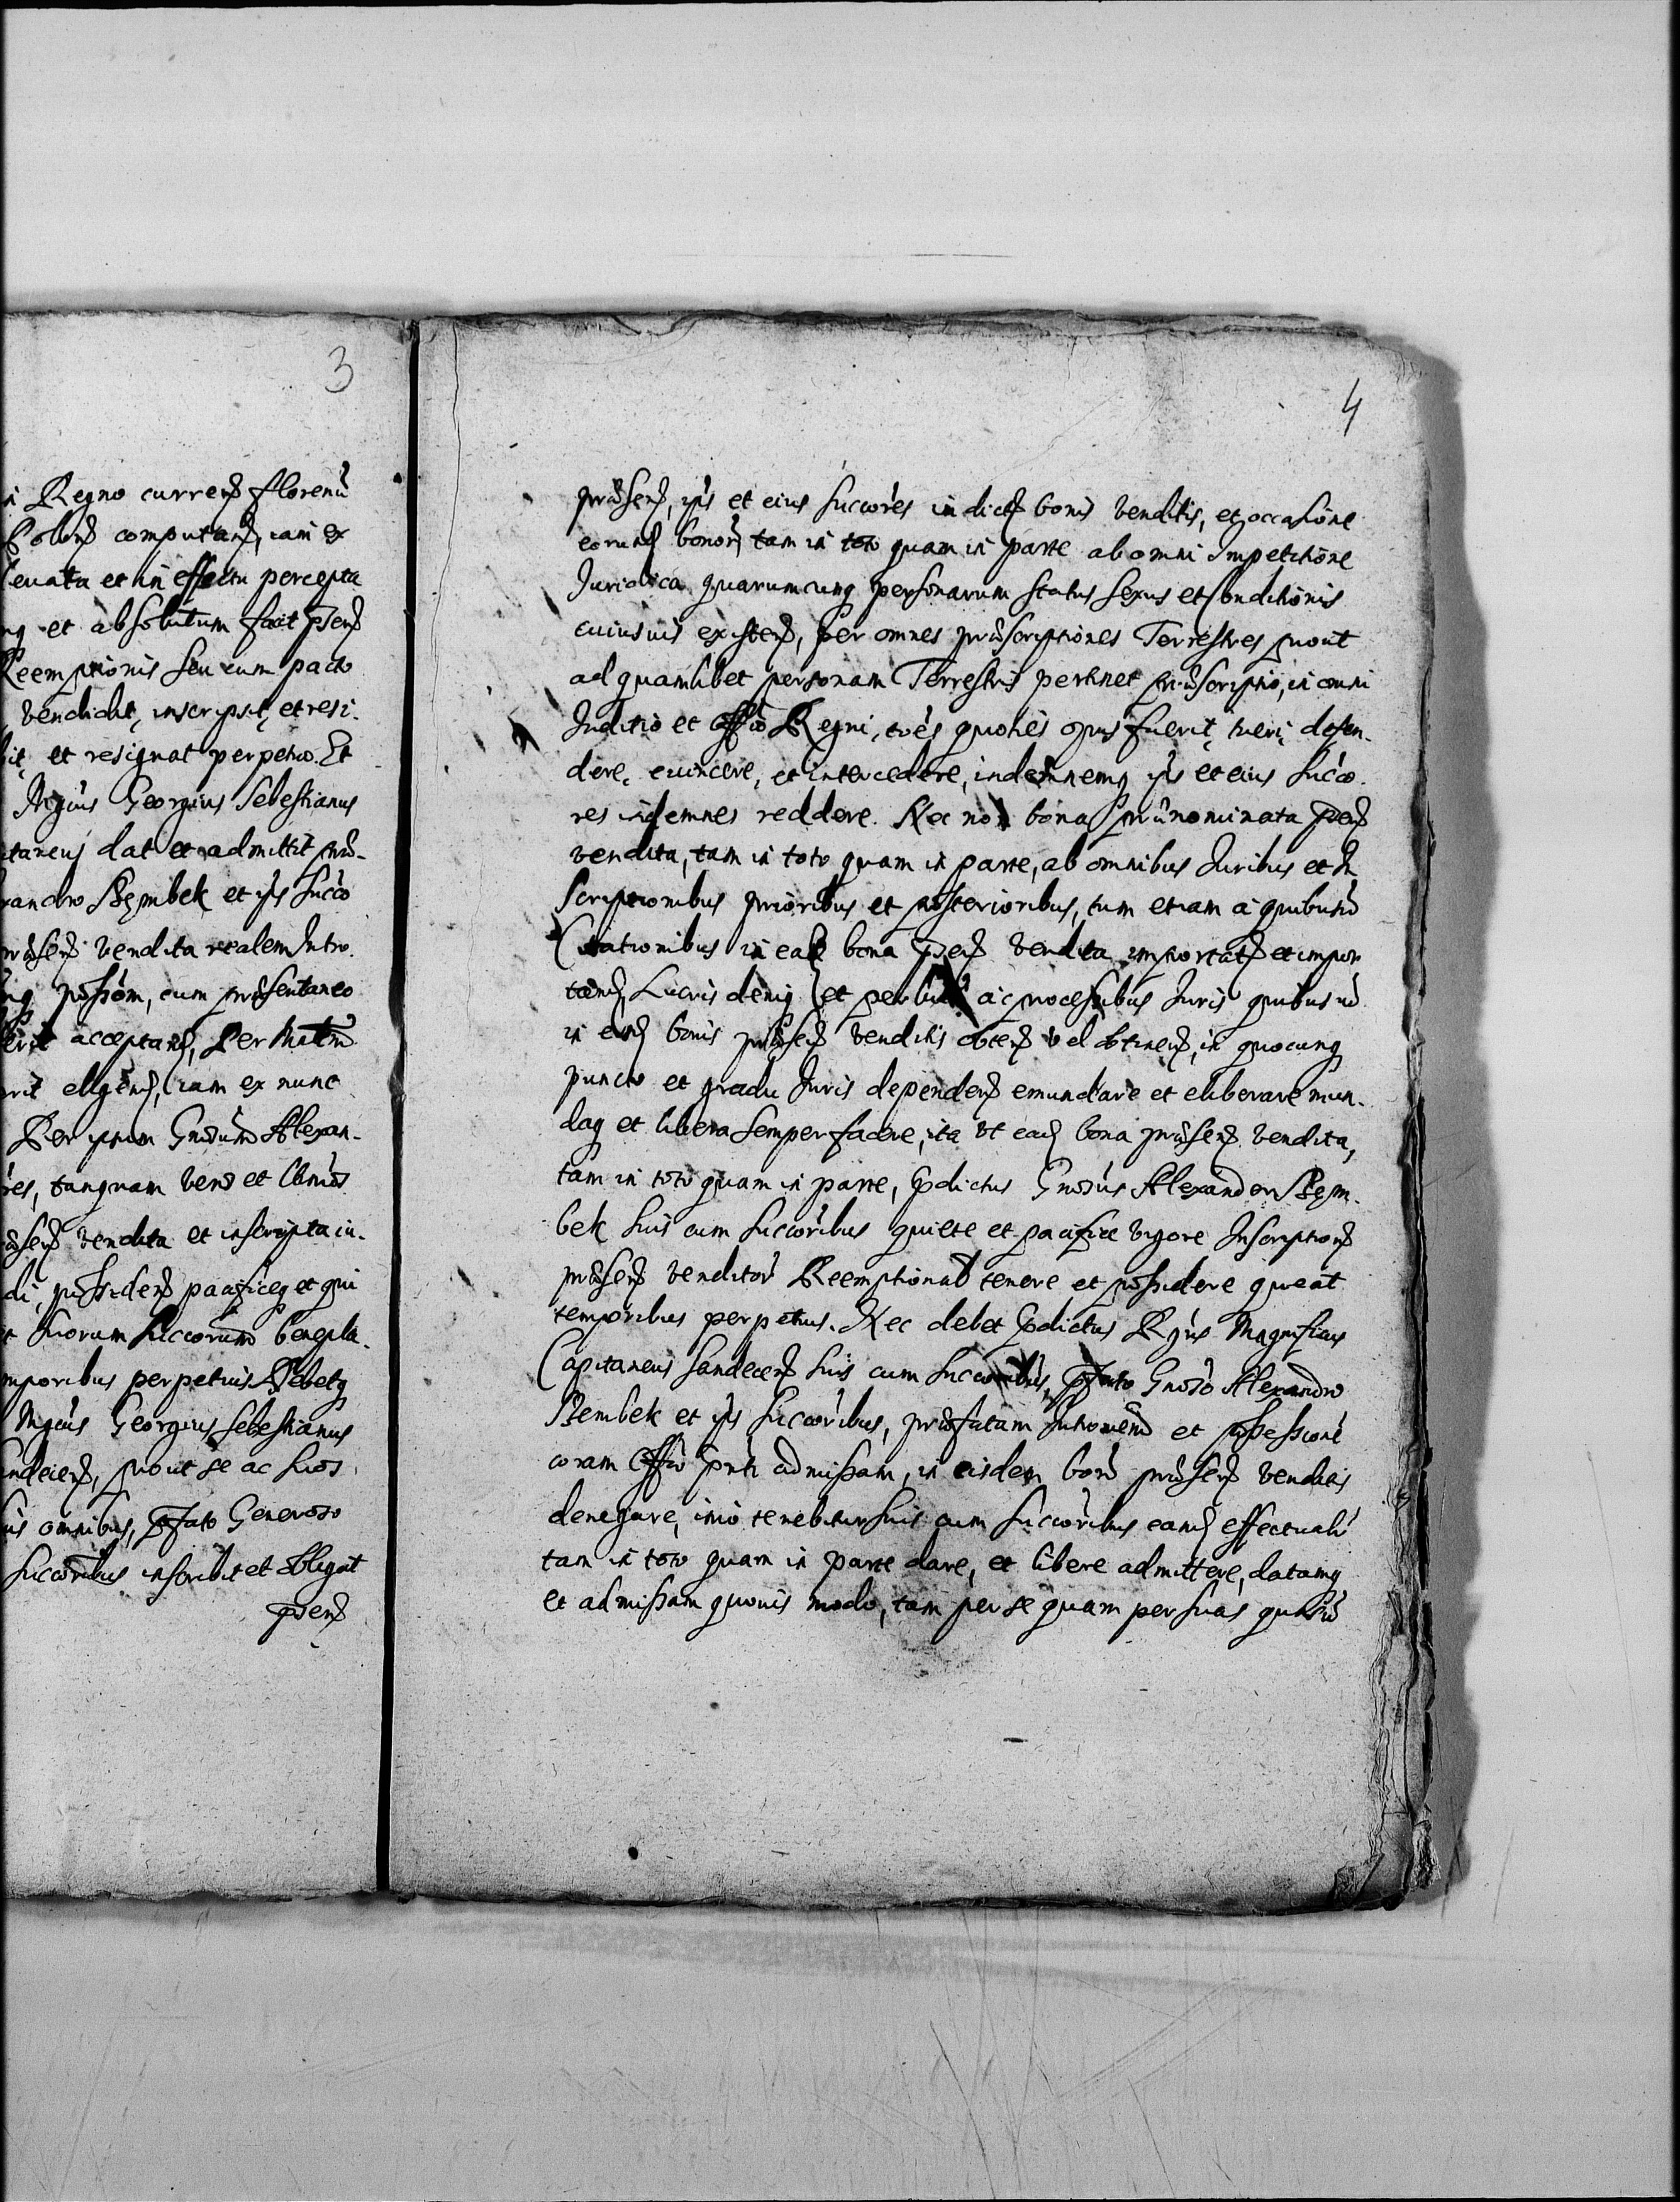 3
n Regno curren florenũ
Polon computan, iam ex
levata et in effectu percepta
ng et absolutum facit pnen
Reemptionis seu cum pacto
vendidit, inscripsit, et resi-
bit, et resignat perpetuo. Et
Mgcus Georgius Sebestianus
itaneus dat et admittit præ-
xandro Rembek et ipĩs Succo
præsen vendita realem Intro
ng possom, cum præsentaneo
erit acceptand, Per Mttm
erit eligend, iam ex nunc
Per ipsum Gnosum Alexan-
res, tanquam veros et ltimos
æsen vendita et inscripta in-
di, possiden pacificeq et qui
et suorum succorum benepla-
mporibus perpetuis Debetq
Mgcus Georgius Sebestianus
ndecen, prout se ac suos
us omnibus, pfato Generoso
succoribus inscribit et obligat
pnen
4
præsen, ipĩs et eius succores in dict bonis venditis, et occasione
eorund bonor tam in toto quam in parte ab omni Impetitione
Juridica quarumcunq personarum status sexus et Conditionis
cuiusuis existen, per omnes præscriptiones Terrestres prout
ad quamlibet personam Terrestris pertinet præscriptio, in omni
Juditio et Offo Regni, toes quoties opus fuerit, tueri, defen-
dere, euincere, et intercedere, indemnemq ipĩs et eius Succo-
res indemnes reddere. Nec non bona prænominata pnen
vendita, tam in toto quam in parte, ab omnibus Juribus et In
Scriptionibus prioribus et posterioribus, tum etiam à quibusuis
Citationibus in ead bona pnen vendita importat et impor
tand, Lucris deniq et perlucris ac processibus Juris quibusuis
in eisd bonis præsen venditis obten vel obtinen, in quocunq
puncto et gradu Juris dependen emundare et eliberare mun-
daq et libera semper facere, ita ut ead bona præsen vendita,
tam in toto quam in parte, pdictus Gnosus Alexander Rem-
bek suis cum succoribus quiete et pacifice vigore Inscription
præsen venditor Reemptional tenere et possidere queat
temporibus perpetuis. Nec debet pdictus Mgcus Magnificus
Capitaneus Sandecen suis cum succoribus, pfato Gnoso Alexandro
Rembek et ipĩs succoribus, præfatam Intromem et possessione
coram Offo pnti admissam, in eisdem bonis præsen venditis
denegare, imo tenebitur suis cum succoribus eand effectuali
tam in toto quam in parte dare, et libere admittere, datamq
et admissam quouis modo, tam per se quam per suas quasuis